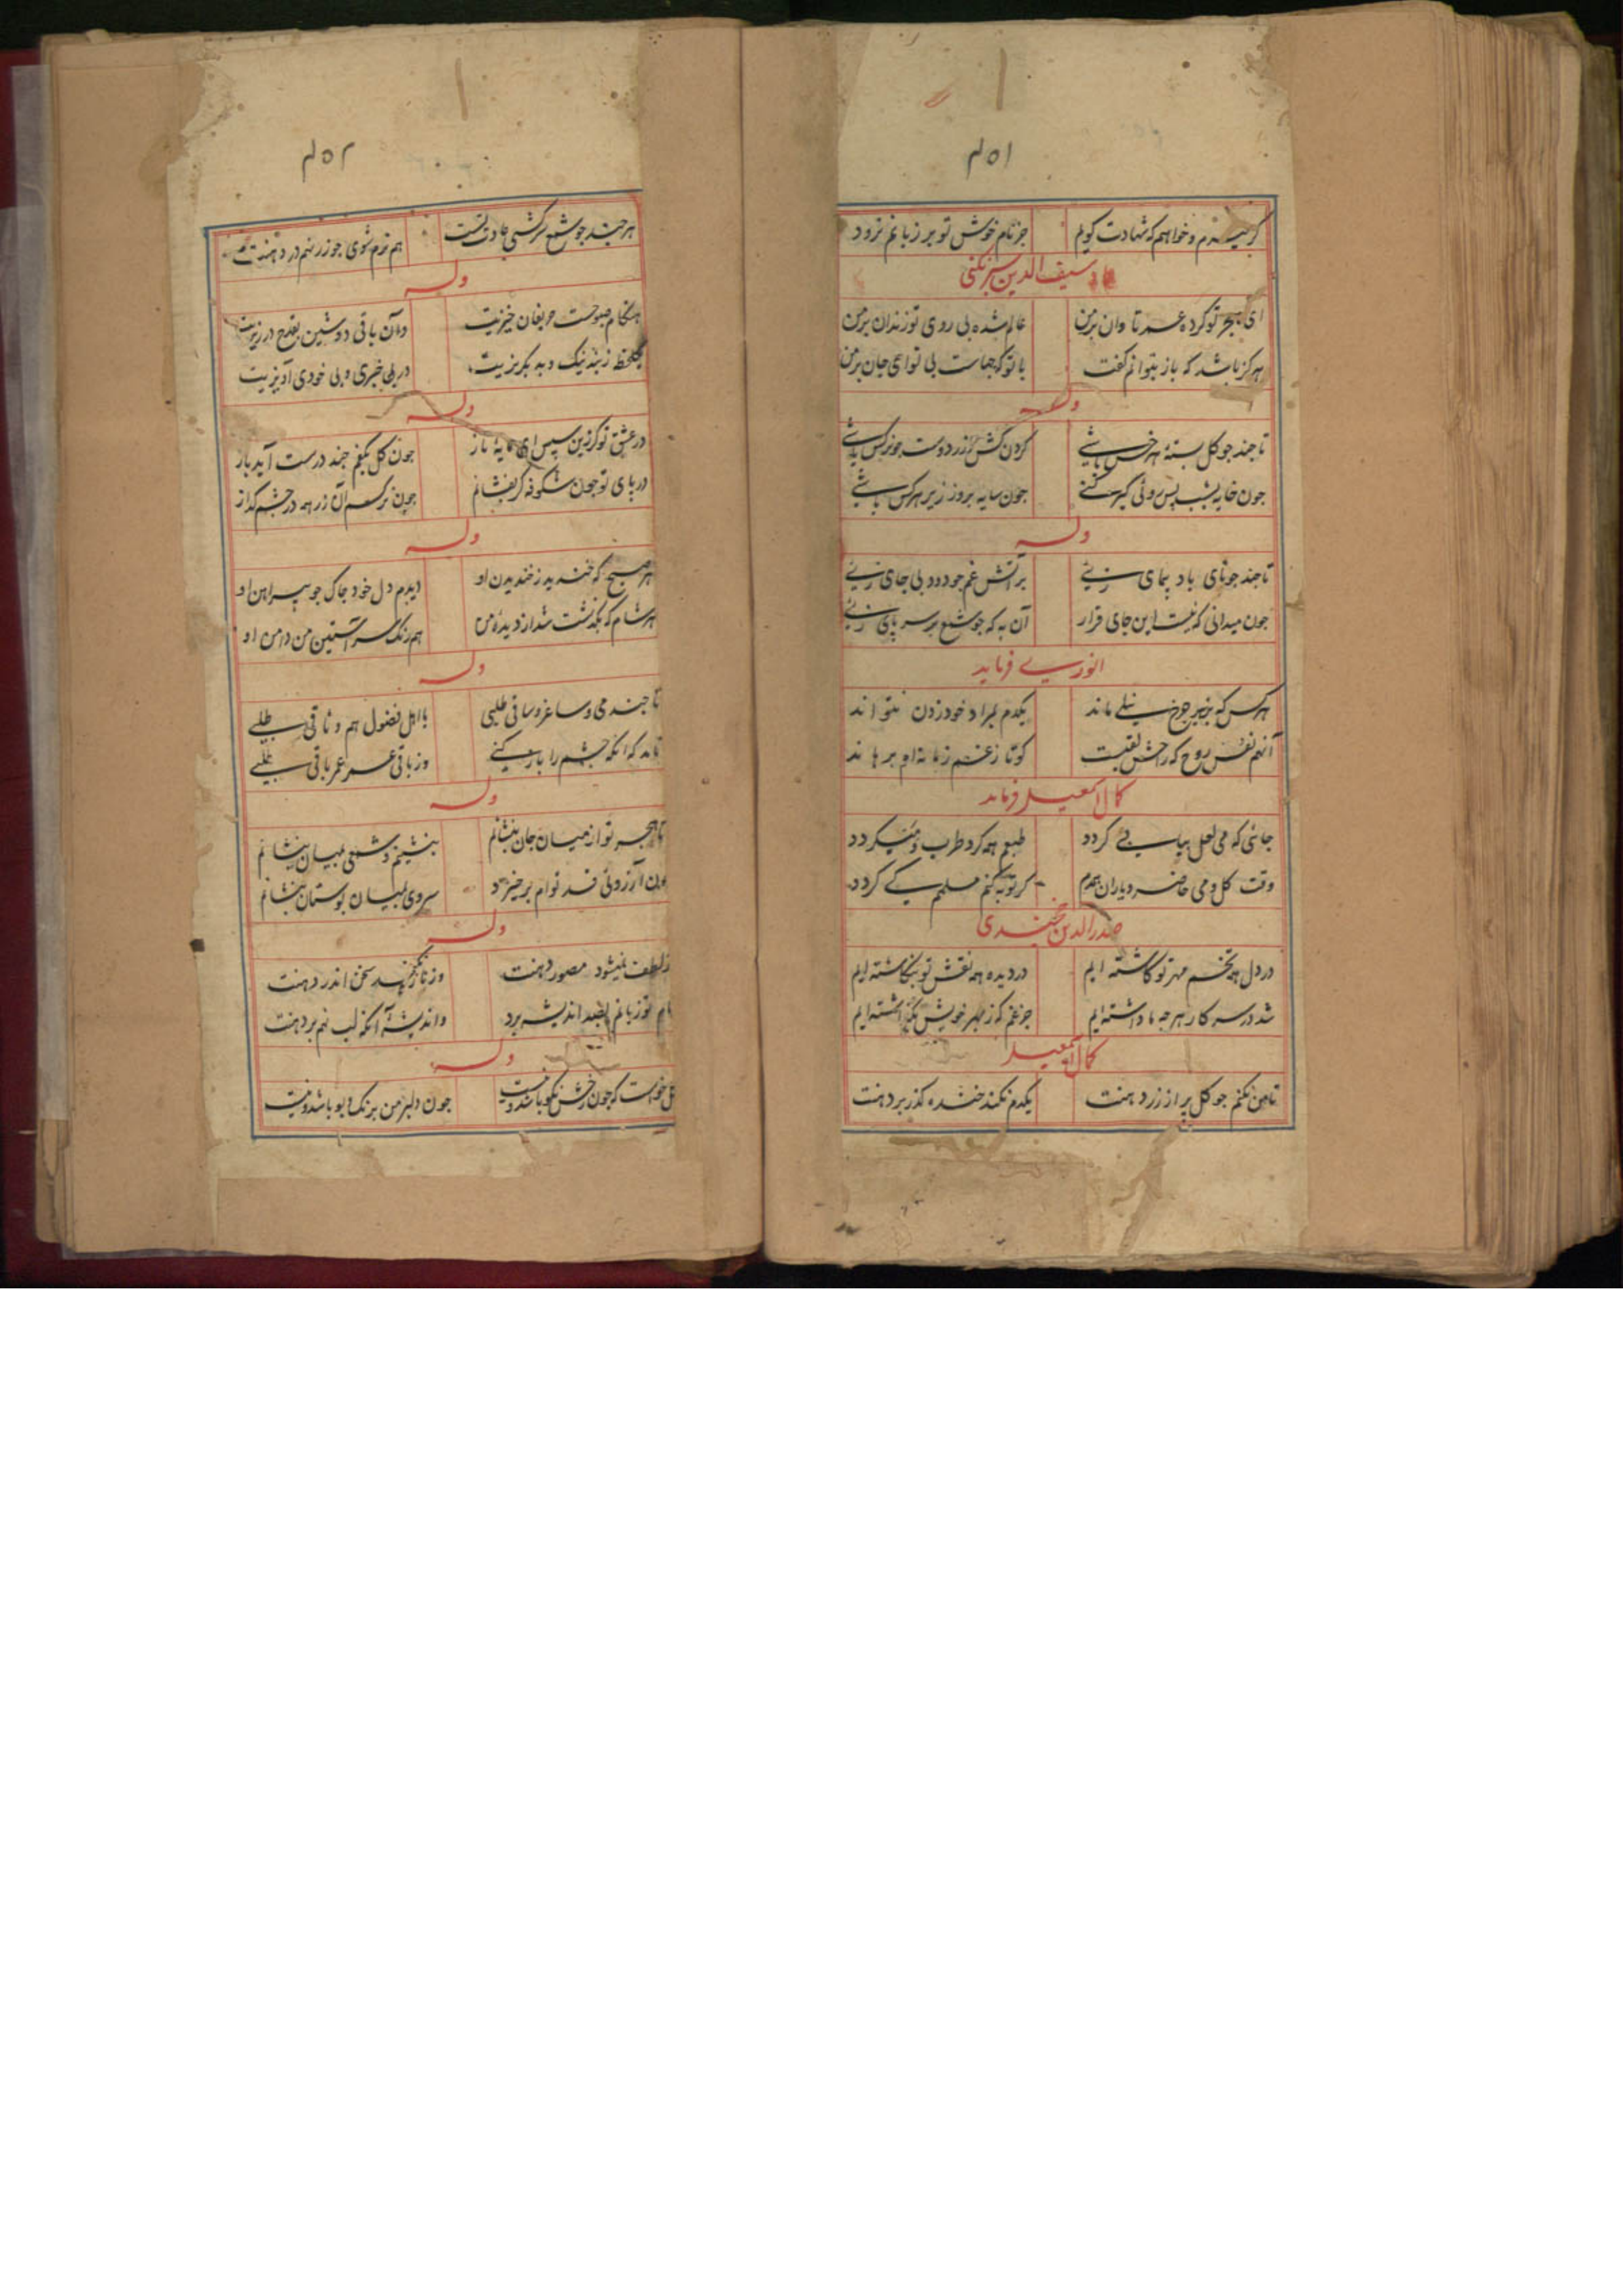 ۴۵۱
و خواهم که شهادت کویم جز نام خوش تو بر زبانم نرود
سیف الدین
ای هجر تو کرده عمر تاوان بر من عالم شده بی روی تو زندان بر من
هرکز باشد که باز بتوانم کفت با تو که جهاست بی تو ای جان بر من
وله
تا جند جو کل بستهٔ هر خس باشی کردن کش از زر دوست جو نرکس باشی
جون خایه بشب پس جون سایه بروز زیر هر کس باشی
وله
تا جند جو نای باد پیمای زیی بر آتش غم جو دود بی جای زیی
جون میدانی که نیست این جای قرار آن به که جو شمع بر سر پای زیی
انوری فرماید
هر کس که بزیر جرخ نیلی ماند یکدم بمراد خود زدن نتواند
روح که راحتش لقبست کو تا ز غم زمانه ام برهاند
کمال اسمعیل فرماید
جائی که می لعل بیاپی کردد طبعم همه کرد طرب و می کردد
وقت کل و می حاضر و یاران همدم کر توبه کنم مسلمم کی کردد
صدرالدین خجندی
در دل همه تخم مهر تو کاشته ایم در دیده همه نقش تو بنکاشته ایم
شد در سر کار هر جه ما داشته ایم جز غم که ز بهر خویش بکذاشته ایم
کمال اسمعیل
تا من نکنم جو کل پر از زر دهنت یکدم نکند خنده کذر بر دهنت
۴۵۲
هر جند جو شمع سرکشی عادت تست هم نرم شوی جو زر نهم در دهنت
وله
هنکام صبوحست حریفان خیزیت وآن باقی دوشین بقدح در ریزیت
یکلحظه ز بند نیک و بد بکریزیت در بی خبری و بی خودی آویزیت
وله
در عشق تو کر زین سپس ای مایهٔ ناز جون کل بکفم جند درست آید باز
در پای تو جون شکوفه کر نفشانم جون نرکسم آن زر همه در جشم کداز
وله
هر صبح که خندید ز خندیدن او دیدم دل خود جاک جو پیراهن او
هر شام که بکذشت شد از دیده من هم رنک سر آستین من دامن او
وله
تا جند می و ساغر و ساقی طلبی با اهل فضول هم وثاقی طلبی
که آنکه جشم را باز کنی وز باقی عمر عمر باقی طلبی
وله
تا هجر تو از میان جان بنشانم بنشینم و شمعی بمیان بنشانم
جون آرزوئی قد توام برخیزد سروی بمیان بوستان بنشانم
وله
ز لطف نمیشود مصور دهنت سخن اندر دهنت
نام تو زبانم بصد اندیشه برد واندیشهٔ آنکه لب نهم بر دهنت
وله
کل خواست که جون رخش نکو باشد و نیست جون دلبر من برنک و بو باشد و نیست